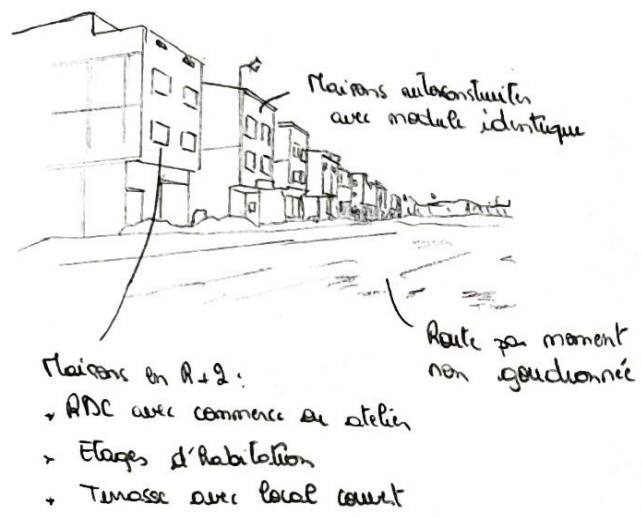 Maisons autoconstruites
avec module identique
Route par moment
non goudronnée
Maisons en R+2 :
RDC avec commerce ou atelier
Etages d'habitation
Terrasse avec local couvert